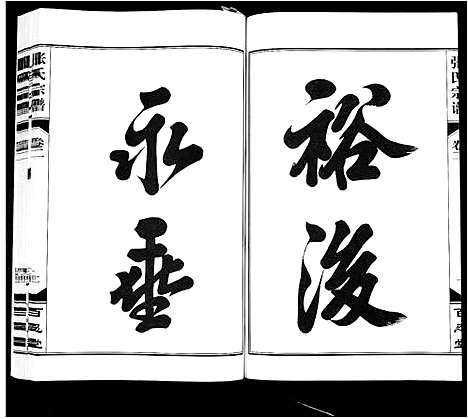 裕後
永垂
張氏宗譜
卷二
百忍堂
張氏宗譜
卷
百忍堂